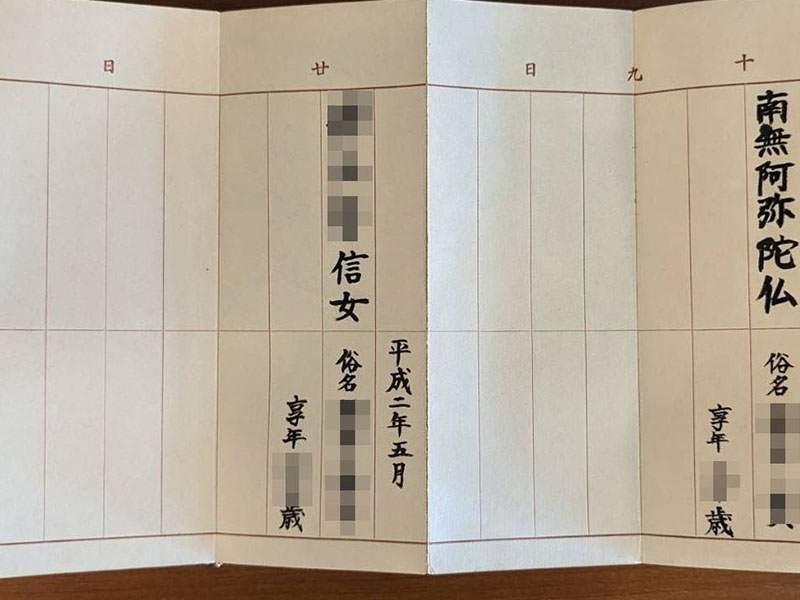 十九日
南無阿弥陀仏
俗名
享年
歳
廿日
平成二年五月
信女
俗名
享年
歳